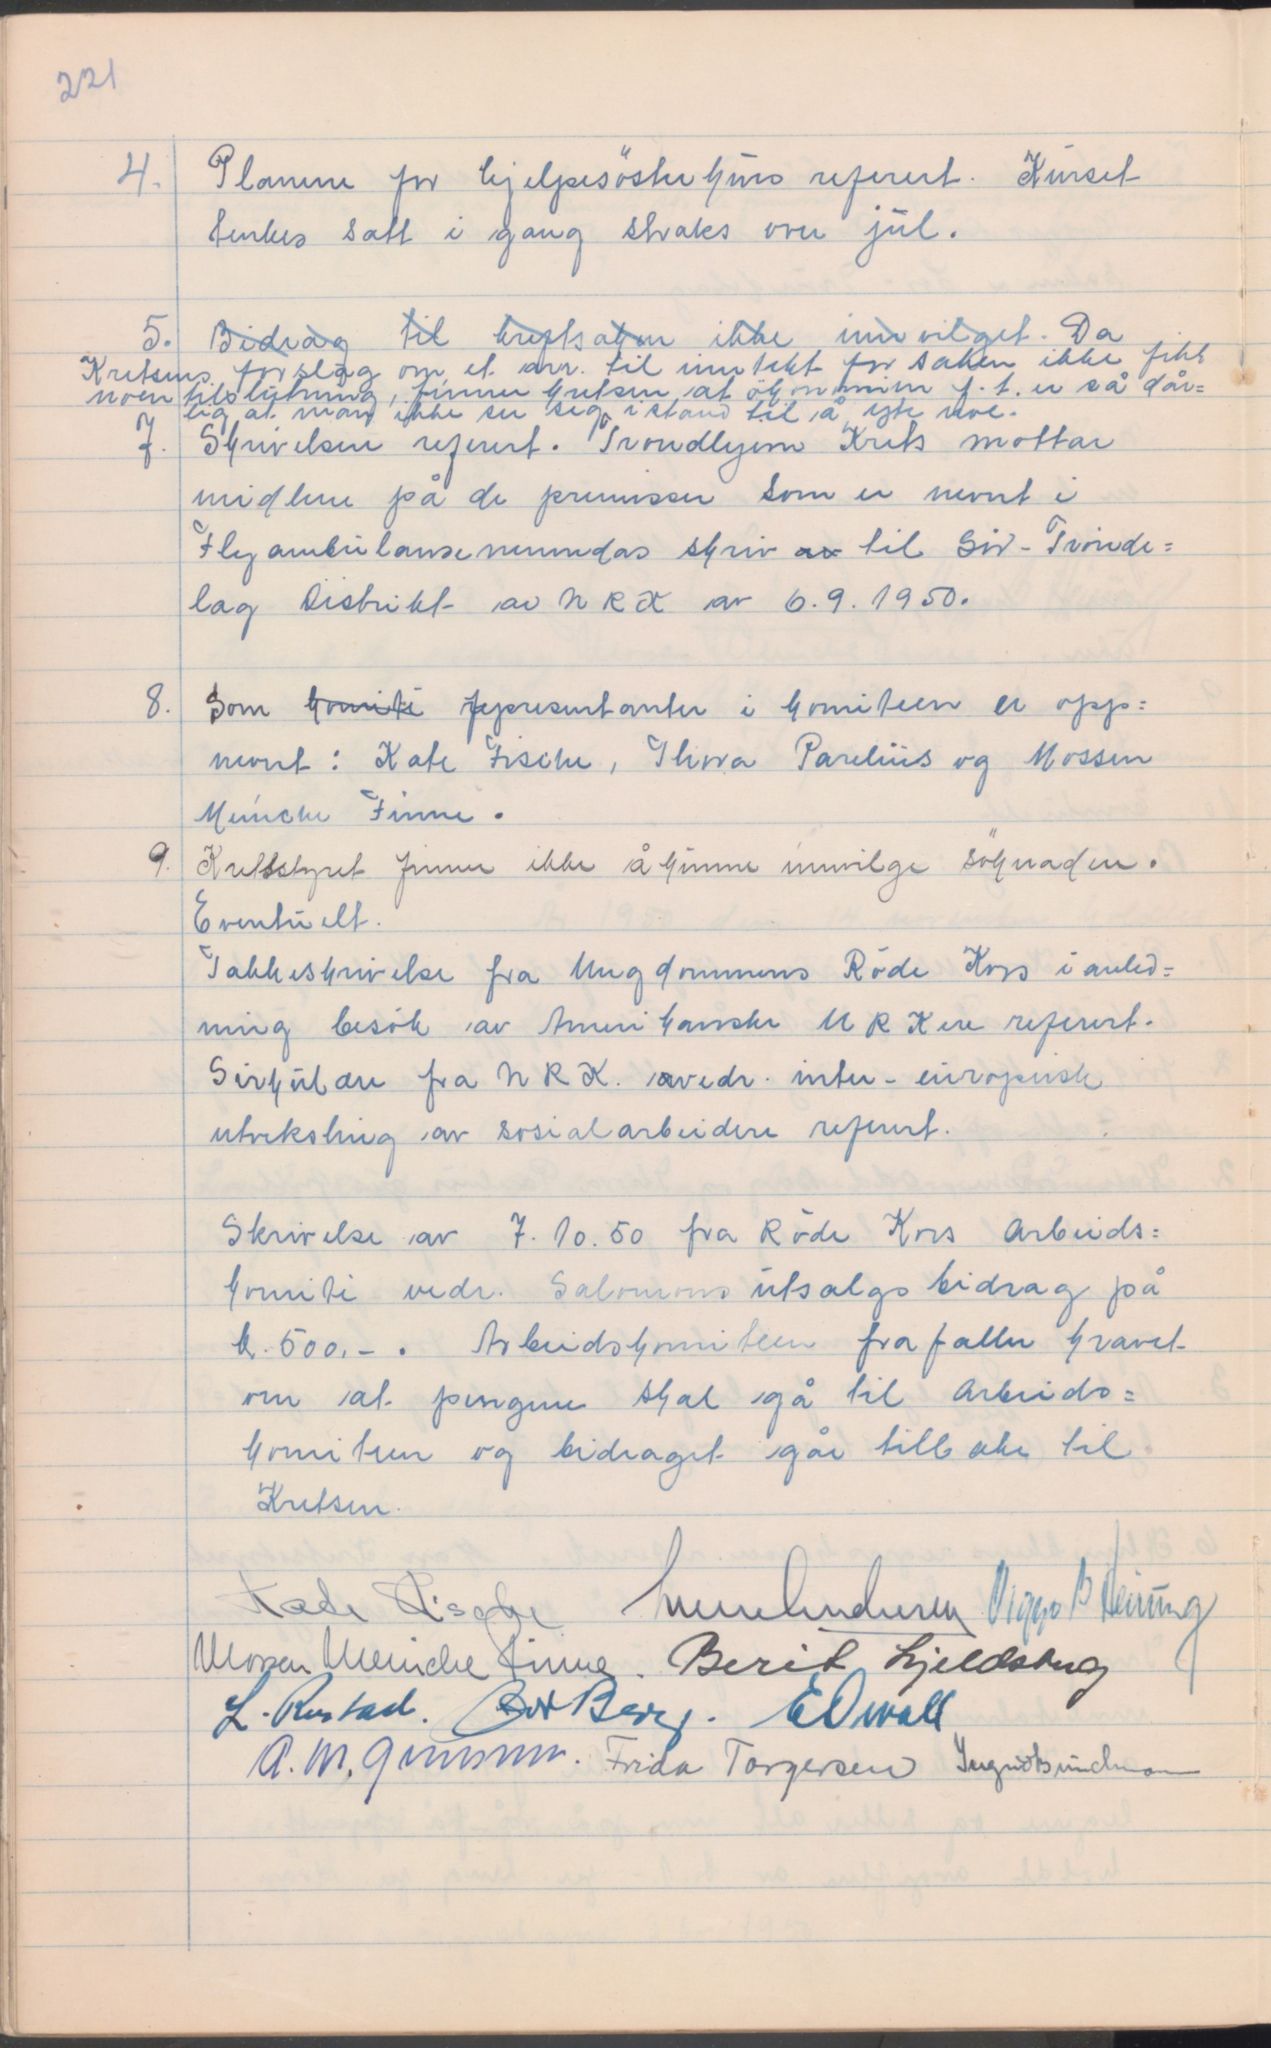 221
4. Planene for hjelpesösterkurs referert. Kurset
tenkes satt i gang straks over jul.
5. Bidrag til kreftsaken ikke innvilget. Da
Kretsens forslag om et arr. til inntekt for saken ikke fikk
noen tilslutning, finner kretsen at ökonomien f. t. er så dår=
lig at man ikke ser seg istand til å yte noe.
7. Skrivelsen referert. Trondhjem Krets mottar
midlene på de premisser som er nevnt i
Flyambulansenemndas skriv av til Sör-Trönde=
lag Distrikt av N R K av 6.9.1950.
8. Som komite representanter i komiteen er opp=
nevnt: Kate Fische, Thora Parelius og Mossen
Meincke Finne.
9. Kretsstyret finner ikke å kunne innvilge söknaden.
Eventuelt.
Takkeskrivelse fra Ungdommens Röde Kors i anled=
ning besök av Amerikanske U R K ere referert.
Sirkulære fra N R K. vedr. inter-europeisk
utveksling av sosialarbeidere referert.
Skrivelse av 7.10.50 fra Röde Kors Arbeids=
komite vedr. Salomons utsalgs bidrag på
kr. 500.-. Arbeidskomiteen frafaller kravet
om at pengene skal gå til Arbeids=
komiteen og bidraget går tilbake til
Kretsen.
Kate Fische Viggo B Heining
Mossen Meincke Finne. Berit Gjeldstrug
L. Rustad. Berg. E Owall
A. M. Frida Torgersen